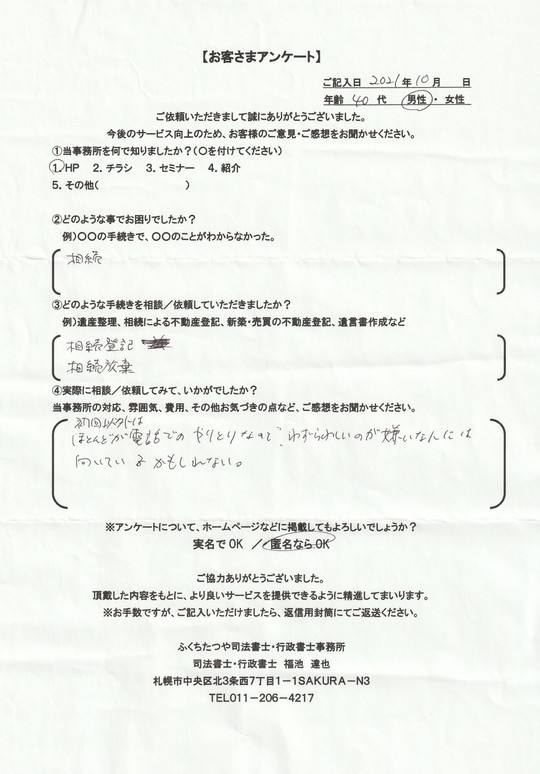 【お客さまアンケート】
ご記入日 2021年 10月 日
年齢 40 代 男性・女性
ご依頼いただきまして誠にありがとうございました。
今後のサービス向上のため、お客様のご意見・ご感想をお聞かせください。
①当事務所を何で知りましたか?(〇を付けてください)
1. HP 2. チラシ 3. セミナー 4. 紹介
5. その他( )
②どのような事でお困りでしたか?
例)〇〇の手続きで、〇〇のことがわからなかった。
相続
③どのような手続きを相談/依頼していただきましたか?
例)遺産整理、相続による不動産登記、新築・売買の不動産登記、遺言書作成など
相続登記
相続放棄
④実際に相談/依頼してみて、いかがでしたか?
当事務所の対応、雰囲気、費用、その他お気づきの点など、ご感想をお聞かせください。
初回以外は
ほとんどが電話でのやりとりなので、わずらわしいのが嫌いな人には
向いているかもしれない。
※アンケートについて、ホームページなどに掲載してもよろしいでしょうか?
実名でOK /匿名ならOK
ご協力ありがとうございました。
頂戴した内容をもとに、より良いサービスを提供できるように精進してまいります。
※お手数ですが、ご記入いただけましたら、返信用封筒にてご返送ください。
ふくちたつや司法書士・行政書士事務所
司法書士・行政書士 福池 達也
札幌市中央区北3条西7丁目1-1SAKURA-N3
TEL011-206-4217